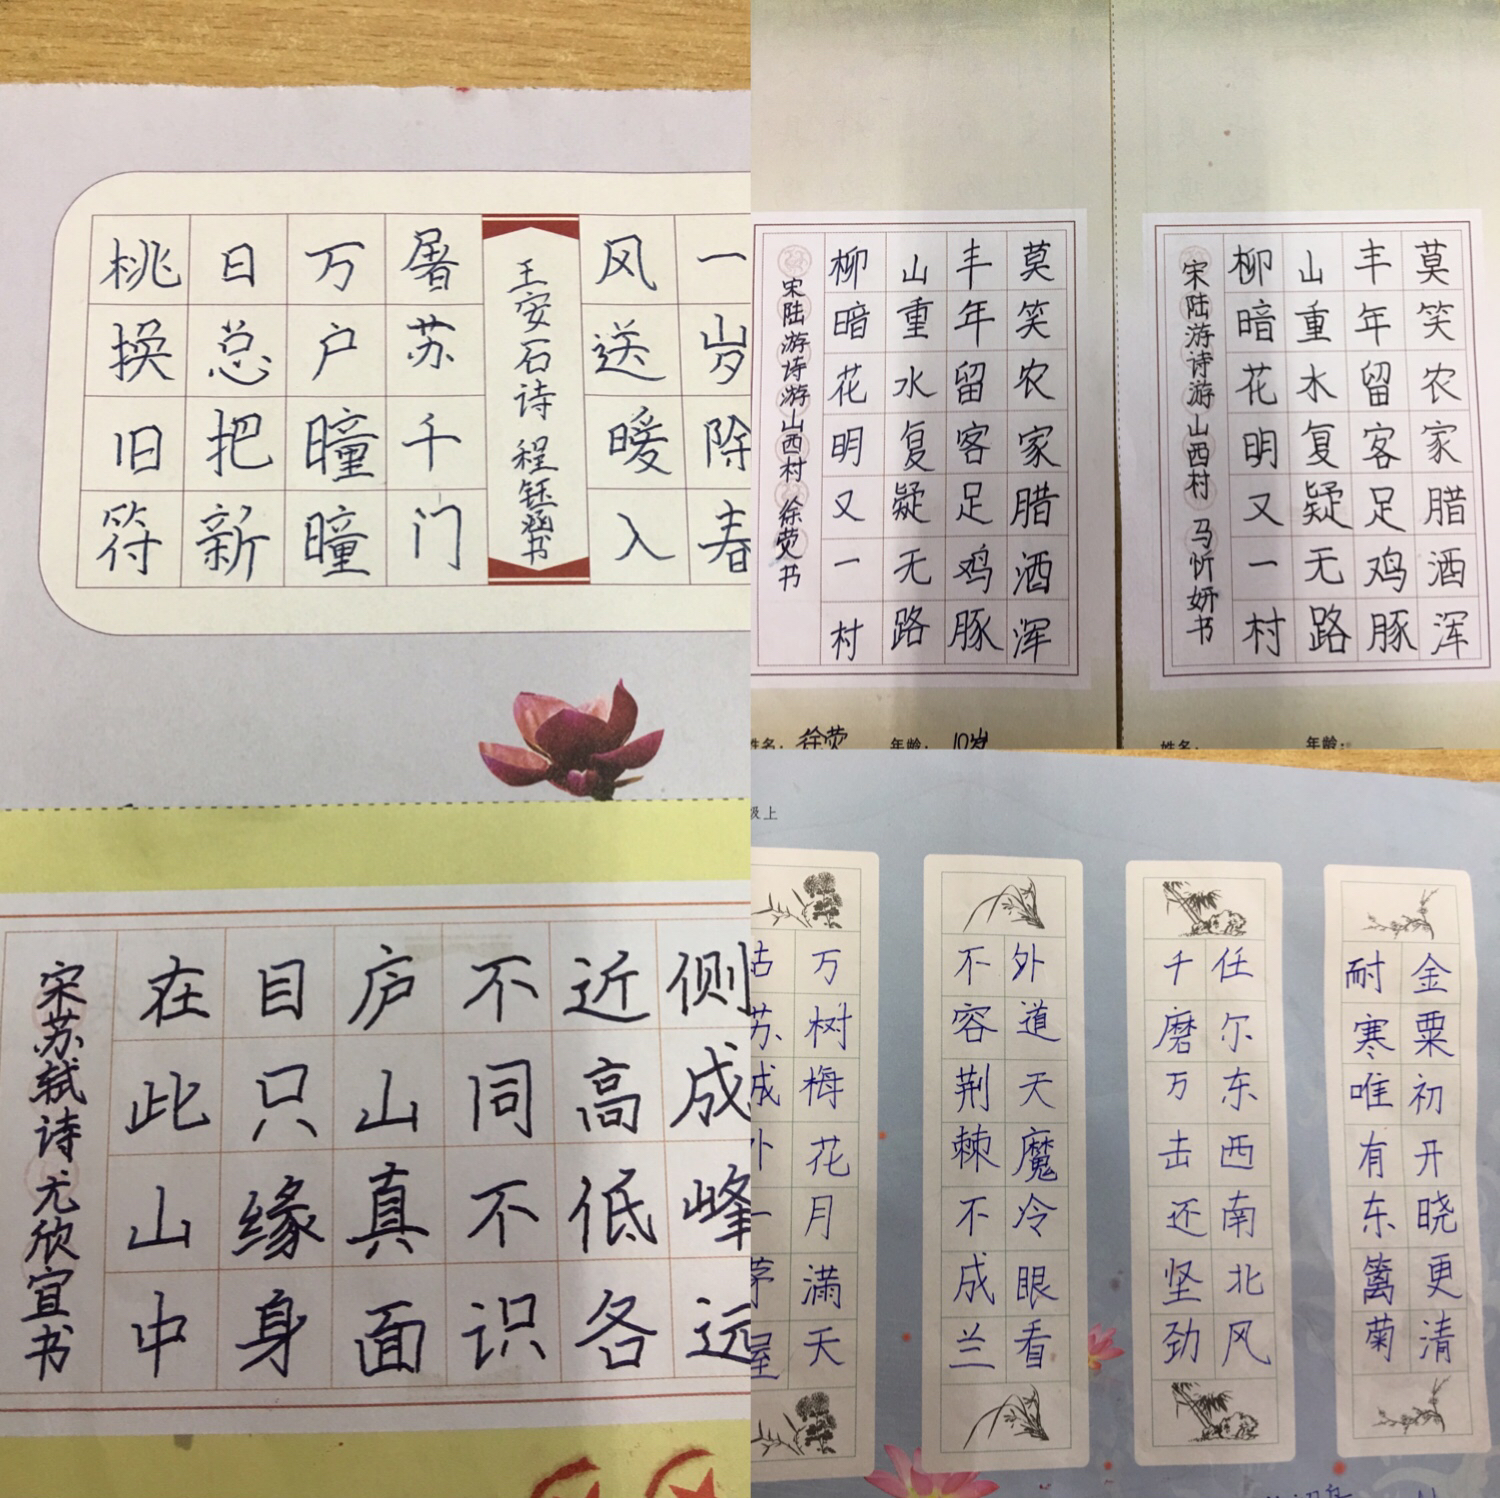 一岁除春
风送暖入
王安石诗 程钰涵书
屠苏千门
万户曈曈
日总把新
桃换旧符
莫笑农家腊酒浑
丰年留客足鸡豚
山重水复疑无路
柳暗花明又一村
宋陆游诗游山西村 徐荧书
姓名：徐荧 年龄：10岁
莫笑农家腊酒浑
丰年留客足鸡豚
山重水复疑无路
柳暗花明又一村
宋陆游诗游山西村 马忻妍书
姓名： 年龄：
侧成峰远
近高低各
不同不识
庐山真面
目只缘身
在此山中
宋苏轼诗 尤欣宣书
级上
金粟初开晓更清
耐寒唯有东篱菊
任尔东西南北风
千磨万击还坚劲
外道天魔冷眼看
不容荆棘不成兰
万树梅花月满天
姑苏城外一茅屋